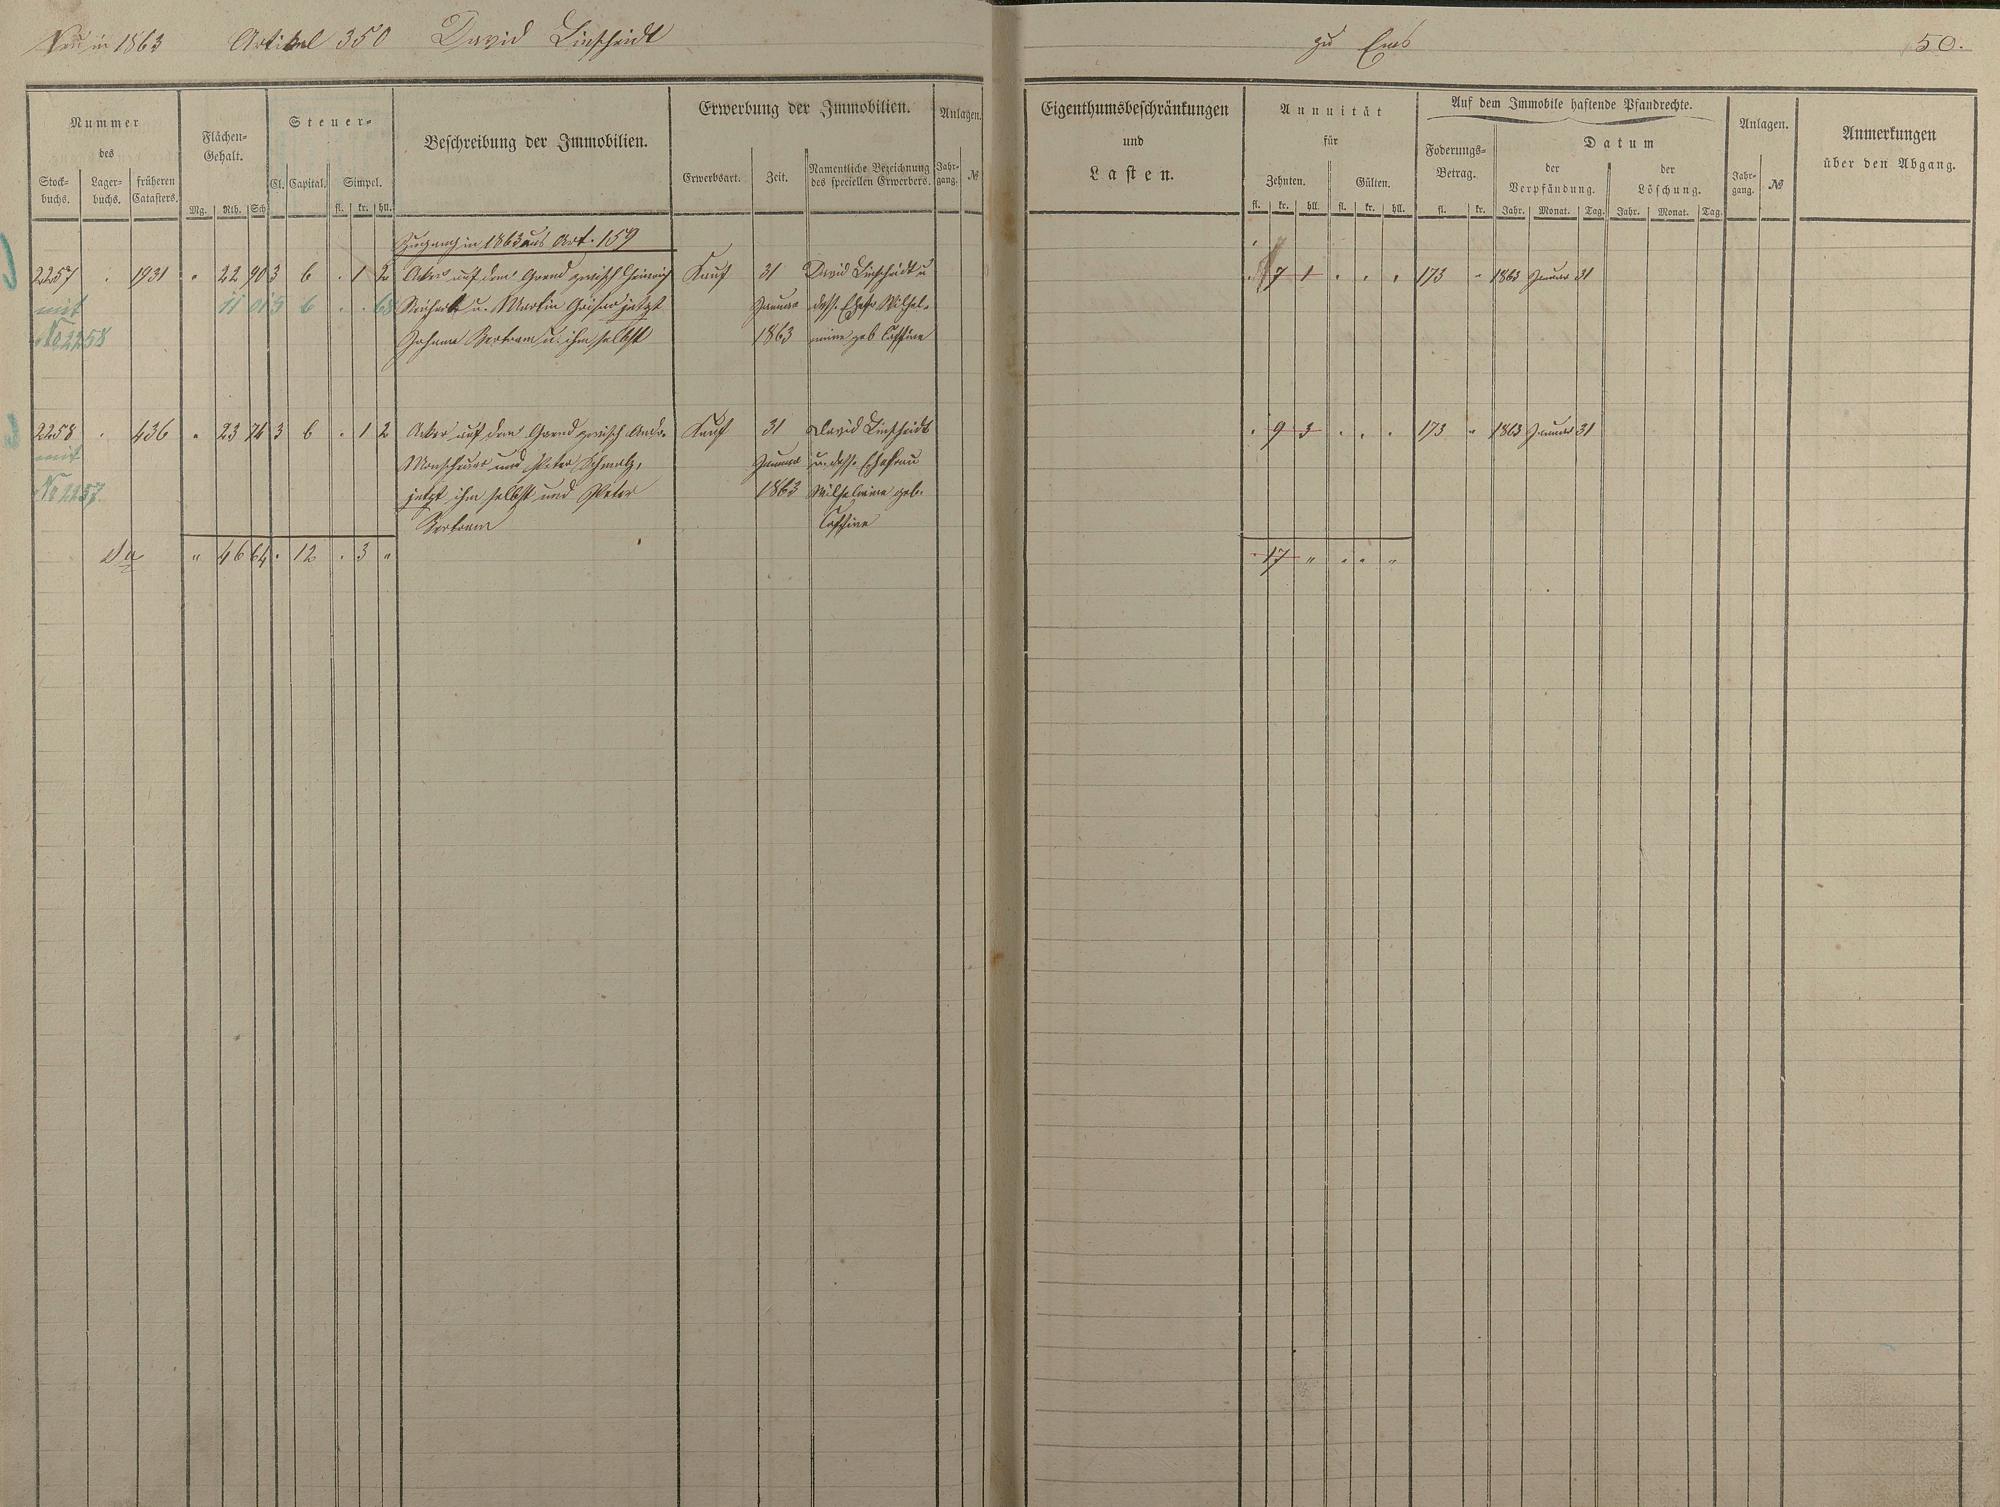 Neu in 1863 Artikel 350 David Linscheidt zu Ems 50.
Nummer
des
Stock-
buchs.
Lager-
buchs.
früheren
Catasters.
Flächen-
Gehalt.
Mg. Rth. Sch
Steuer-
Cl. Capital. Simpel.
fl. kr. hll.
Beschreibung der Immobilien.
Erwerbung der Immobilien.
Erwerbsart. Zeit.
Namentliche Bezeichnung
des speciellen Erwerbers.
Anlagen.
Jahr-
gang.
№
Eigenthumsbeschränkungen
und
Lasten.
Annuität
für
Zehnten. Gülten.
fl. kr. hll. fl. kr. hll.
Auf dem Immobile haftende Pfandrechte.
Foderungs-
Betrag.
fl. kr.
Datum
der
Verpfändung.
der
Löschung.
Jahr. Monat. Tag. Jahr. Monat. Tag.
Anlagen.
Jahr-
gang.
№
Anmerkungen
über den Abgang.
Zugang in 1863 aus Art. 159
2257 . 1931 " 22 90 3 6 . 1 2 Acker auf dem Grend zwisch Heinrich Kauf 31 David Linscheidt u . 7 1 . . . 173 " 1863 Januar 31
mit 11 01 3 6 . . 68 u. Martin jetzt Januar dess. Ehefr Wilhel-
No 2258 Johann Bertram u. ihm selbst 1863 mine geb
2258 . 436 " 23 74 3 6 . 1 2 Acker auf dem Grend zwisch Kauf 31 David Linscheidt . 9 3 . . . 173 " 1863 Januar 31
mit und Peter Schmalz, Januar u. dess. Ehefrau
No 2257. jetzt ihm selbst und Peter 1863 Wilhelmine geb.
Bertram
Sa " 46 64 . 12 . 3 " . 17 " . . "